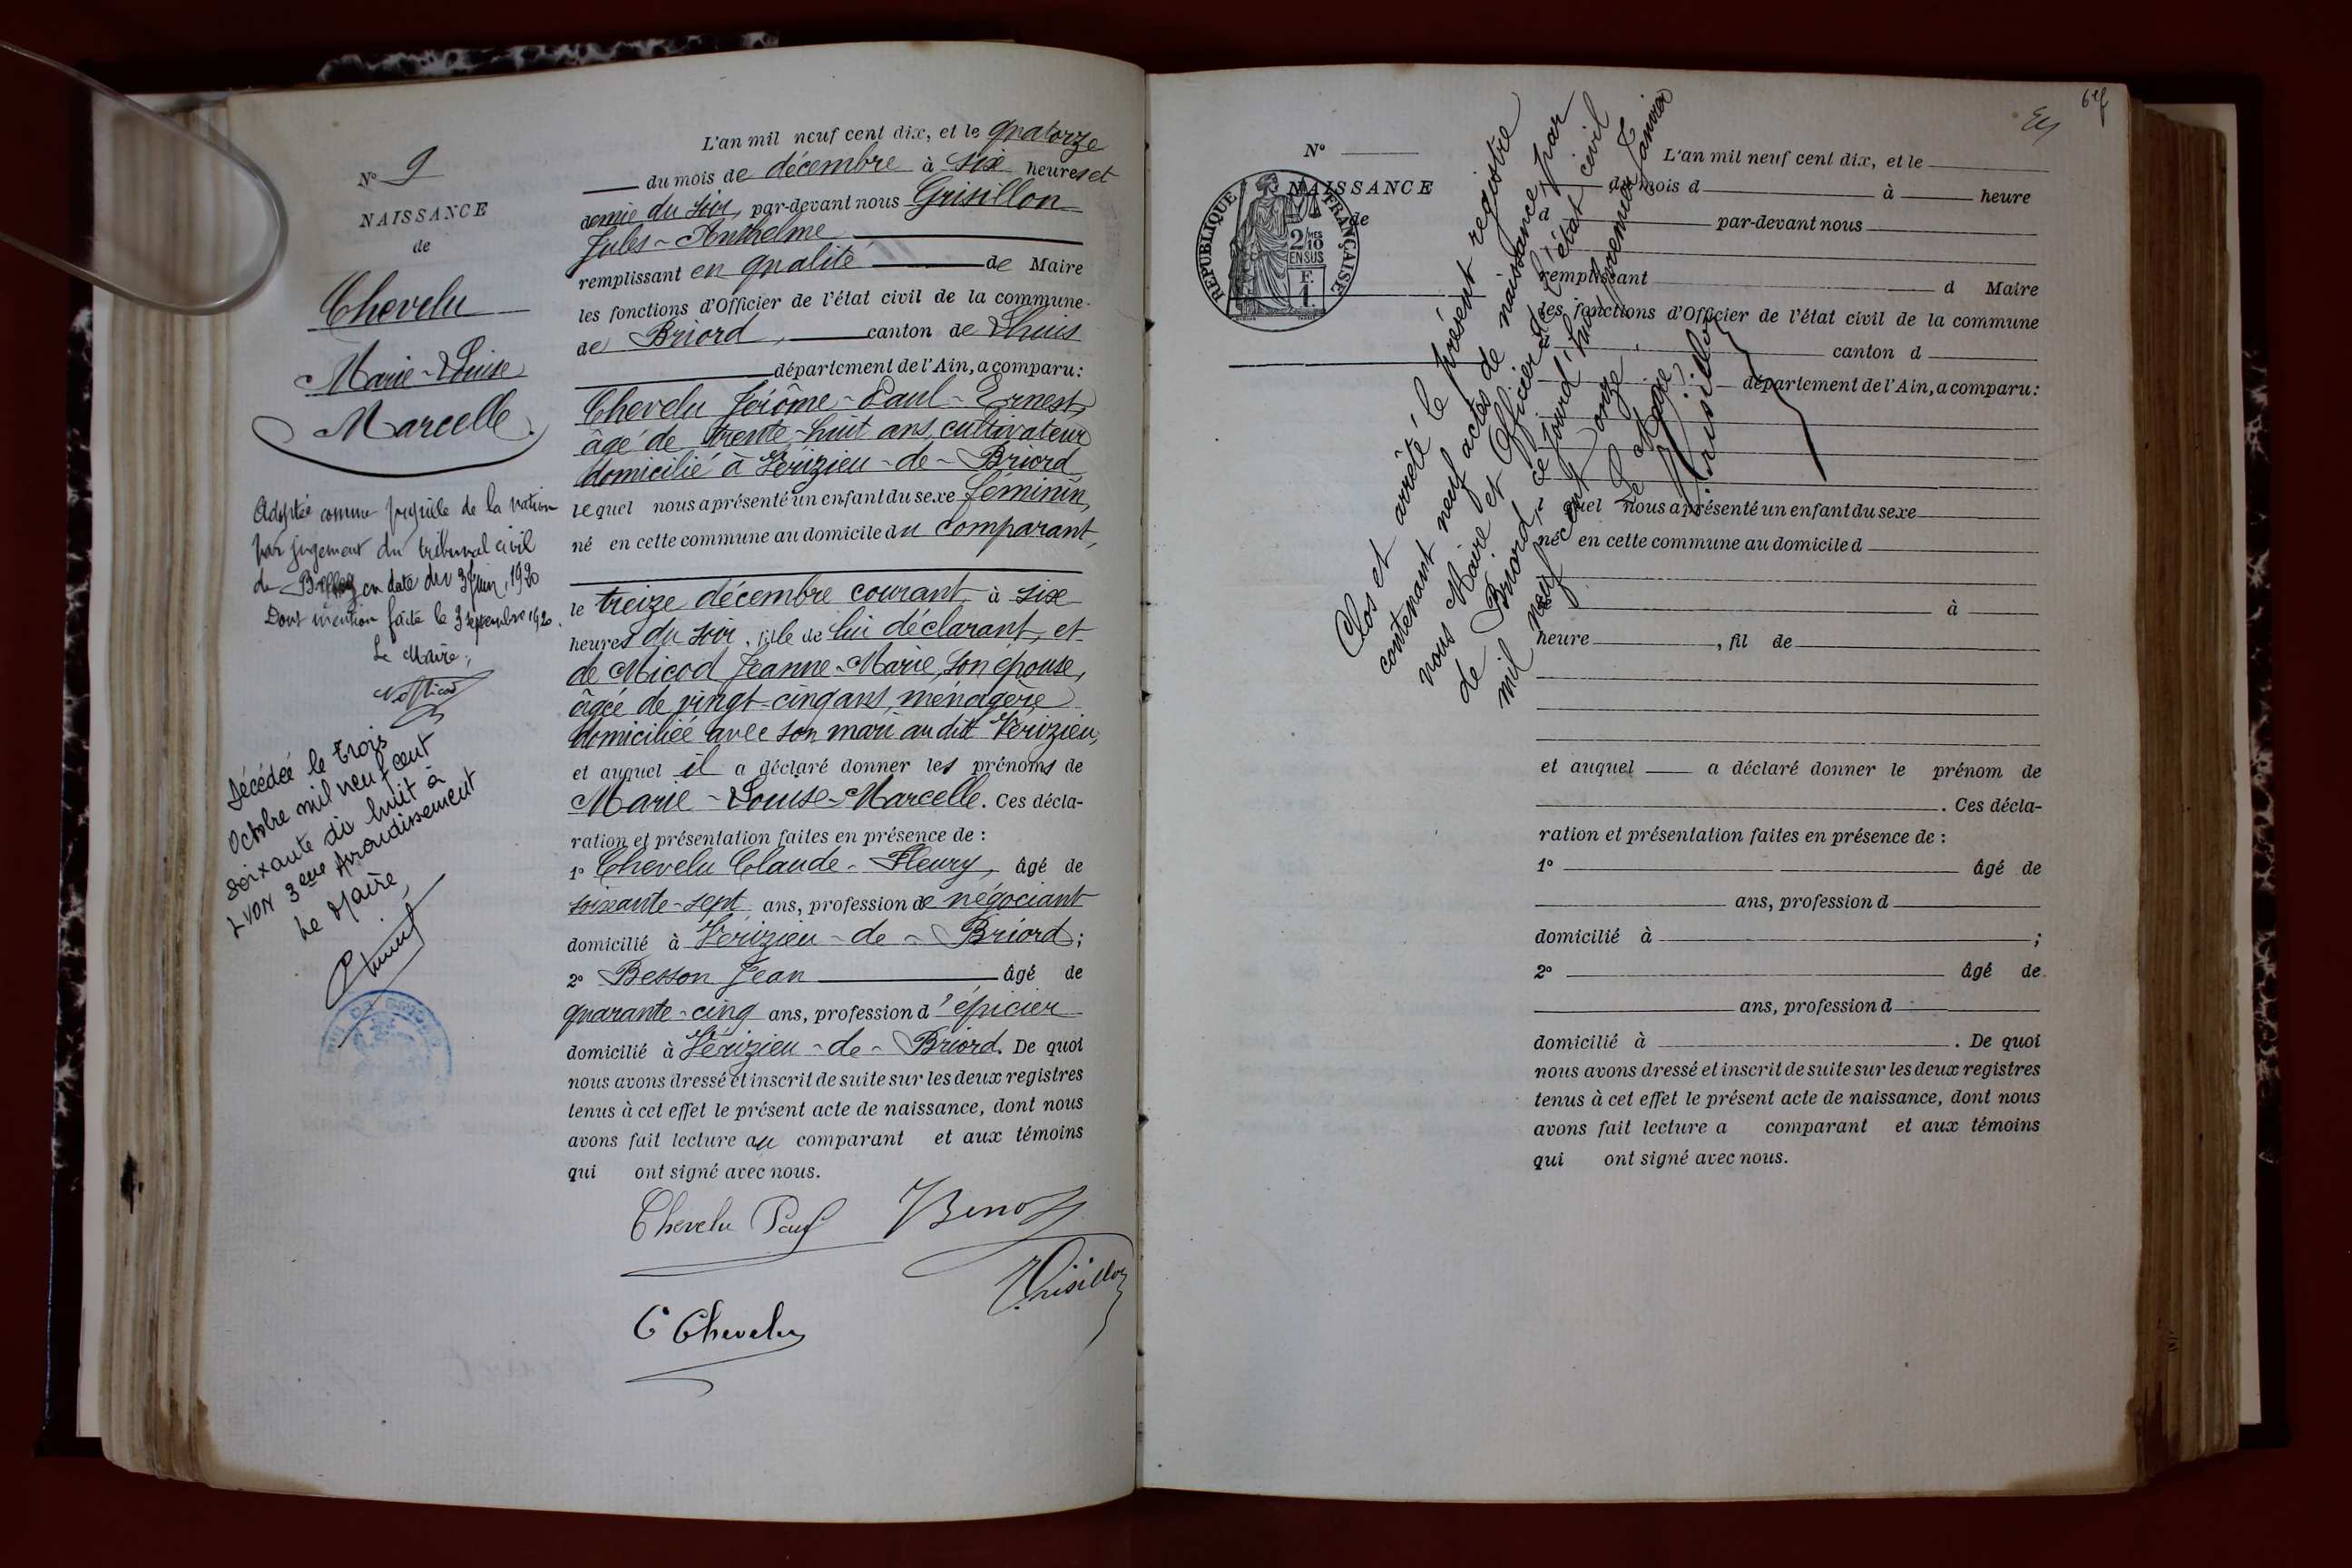 N° 9
NAISSANCE
de
Chevelu
Marie-Louise
Marcelle.
Adoptée comme pupille de la nation
par jugement du tribunal civil
de Belley en date du 3 Juin 1920
Dont mention faite le 3 septembre 1920.
Le Maire,
Décédée le trois
Octobre mil neuf cent
soixante dix huit à
LYON 3eme Arrondissement
Le Maire,
L'an mil neuf cent dix, et le quatorze
du mois de décembre à six heures et
demie du soir, par-devant nous Grisillon
Jules-Anthelme
remplissant en qualité de Maire
les fonctions d'Officier de l'état civil de la commune
de Briord, canton de Lhuis
département de l'Ain, a comparu:
Chevelu Jérôme-Paul-Ernest,
âgé de trente-huit ans, cultivateur
domicilié à Vérizieu-de-Briord
lequel nous a présenté un enfant du sexe féminin,
né en cette commune au domicile du comparant,
le treize décembre courant, à six
heures du soir, fille de lui déclarant, et
de Micod Jeanne-Marie, son épouse,
âgée de vingt-cinq ans, ménagère
domiciliée avec son mari au dit Vérizieu,
et auquel il a déclaré donner les prénoms de
Marie-Louise-Marcelle. Ces décla-
ration et présentation faites en présence de :
1° Chevelu Claude-Fleury, âgé de
soixante-sept ans, profession de négociant
domicilié à Vérizieu-de-Briord;
2° Besson Jean âgé de
quarante-cinq ans, profession d'épicier
domicilié à Vérizieu-de-Briord. De quoi
nous avons dressé et inscrit de suite sur les deux registres
tenus à cet effet le présent acte de naissance, dont nous
avons fait lecture au comparant et aux témoins
qui ont signé avec nous.
Chevelu Paul
Grisillon
C Chevelu
N°
NAISSANCE
de
RÉPUBLIQUE FRANÇAISE
2/10MES
EN SUS
F.
1.
Clos et arrêté le présent registre
contenant neuf actes de naissance par
nous Maire et Officier de l'état civil
de Briord, ce jourd'hui premier Janvier
mil neuf cent onze.
Le Maire,
Grisillon
L'an mil neuf cent dix, et le
du mois d à heure
d par-devant nous
remplissant d Maire
les fonctions d'Officier de l'état civil de la commune
canton d
département de l'Ain, a comparu:
quel nous a présenté un enfant du sexe
né en cette commune au domicile d
le à
heure , fil de
et auquel a déclaré donner le prénom de
. Ces décla-
ration et présentation faites en présence de :
1° âgé de
ans, profession d
domicilié à ;
2° âgé de
ans, profession d
domicilié à . De quoi
nous avons dressé et inscrit de suite sur les deux registres
tenus à cet effet le présent acte de naissance, dont nous
avons fait lecture a comparant et aux témoins
qui ont signé avec nous.